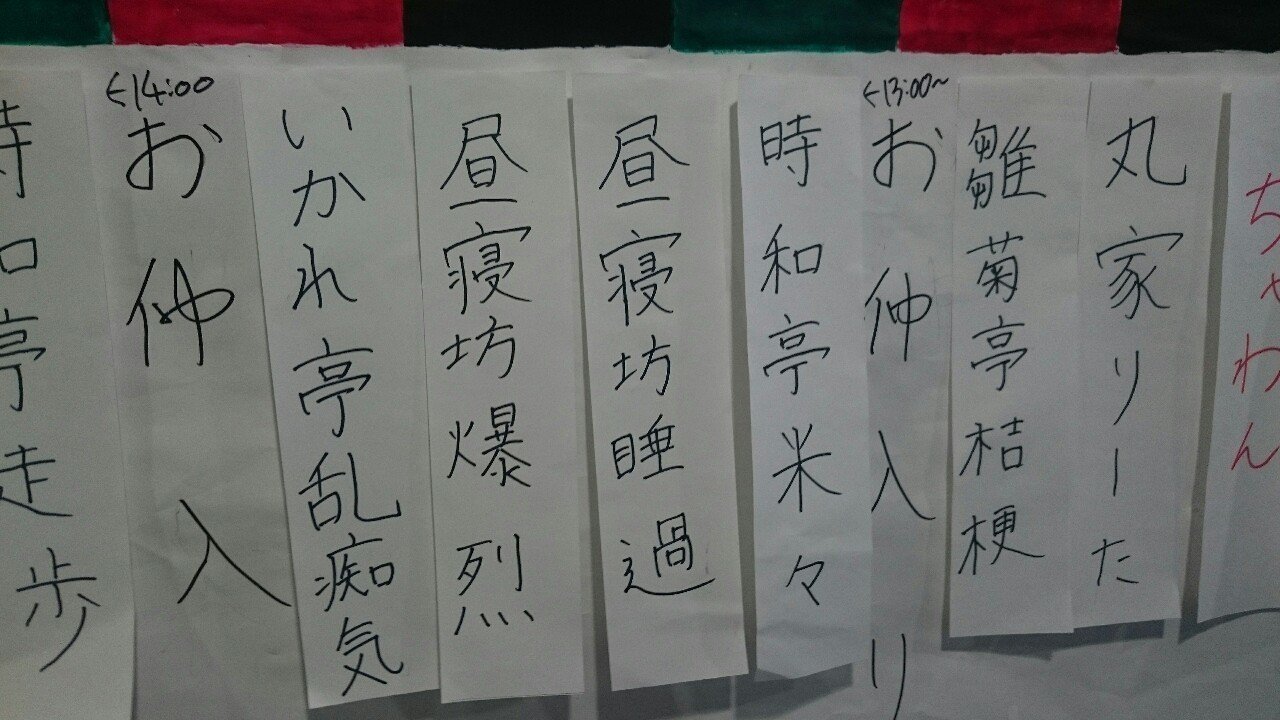 ちゃわん
丸家りーた
雛菊亭桔梗
←13:00〜
お仲入り
時和亭米々
昼寝坊睡過
昼寝坊爆烈
いかれ亭乱痴気
←14:00
お仲入
時和亭走歩